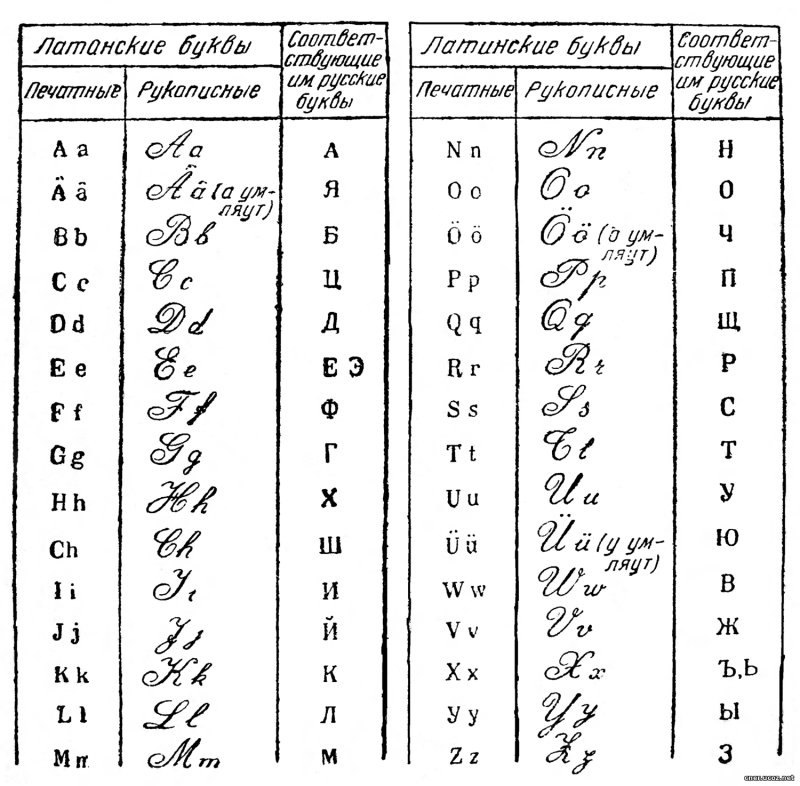 Латанские буквы
Соответ-
ствующие
им русские
буквы
Печатные Рукописные
A a Aa А
Ä ä Ää (а ум-
ляут) Я
B b Bb Б
C c Cc Ц
D d Dd Д
E e Ee Е Э
F f Ff Ф
G g Gg Г
H h Hh Х
Ch Ch Ш
I i Ii И
J j Jj Й
K k Kk К
L l Ll Л
M m Mm М
Латинские буквы
Соответ-
ствующие
им русские
буквы
Печатные Рукописные
N n Nn Н
O o Oo О
Ö ö Öö (о ум-
ляут) Ч
P p Pp П
Q q Qq Щ
R r Rr Р
S s Ss С
T t Tt Т
U u Uu У
Ü ü Üü (у ум-
ляут) Ю
W w Ww В
V v Vv Ж
X x Xx Ъ,Ь
Y y Yy Ы
Z z Zz З
cner.ucoz.net